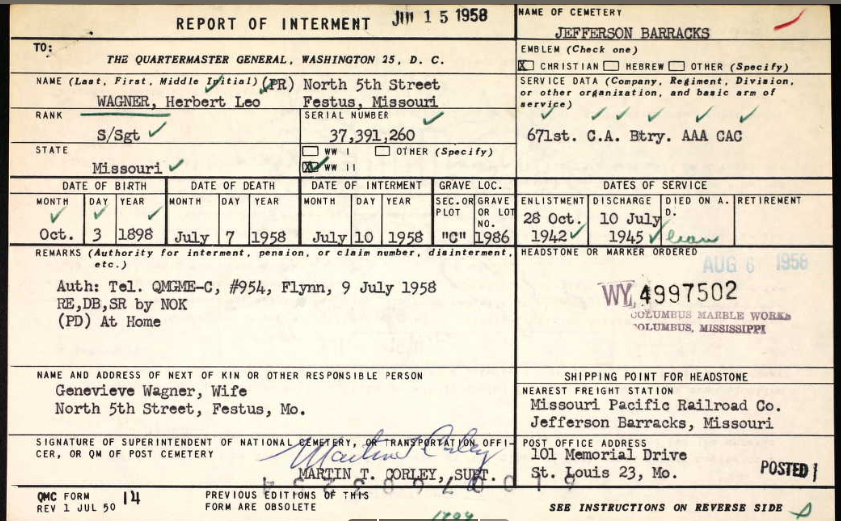 REPORT OF INTERMENT
15 1958
TO:
THE QUARTERMASTER GENERAL, WASHINGTON 25, D. C.
NAME (Last, First, Middle Initial) (PR) North 5th Street
WAGNER, Herbert Leo Festus, Missouri
RANK
S/Sgt
SERIAL NUMBER
37,391,260
STATE
Missouri
WW I OTHER (Specify)
X WW II
NAME OF CEMETERY
JEFFERSON BARRACKS
EMBLEM (Check one)
X CHRISTIAN HEBREW OTHER (Specify)
SERVICE DATA (Company, Regiment, Division,
or other organization, and basic arm of
service)
671st. C.A. Btry. AAA CAC
DATE OF BIRTH DATE OF DEATH DATE OF INTERMENT GRAVE LOC.
MONTH DAY YEAR MONTH DAY YEAR MONTH DAY YEAR SEC.OR PLOT GRAVE OR LOT NO.
Oct. 3 1898 July 7 1958 July 10 1958 "C" 1986
DATES OF SERVICE
ENLISTMENT DISCHARGE DIED ON A. D. RETIREMENT
28 Oct. 10 July
1942 1945
REMARKS (Authority for interment, pension, or claim number, disinterment,
etc.)
Auth: Tel. QMGME-C, #954, Flynn, 9 July 1958
RE,DB,SR by NOK
(PD) At Home
HEADSTONE OR MARKER ORDERED
AUG 6 1958
WY 4997502
COLUMBUS MARBLE WORKS
COLUMBUS, MISSISSIPPI
NAME AND ADDRESS OF NEXT OF KIN OR OTHER RESPONSIBLE PERSON
Genevieve Wagner, Wife
North 5th Street, Festus, Mo.
SHIPPING POINT FOR HEADSTONE
NEAREST FREIGHT STATION
Missouri Pacific Railroad Co.
Jefferson Barracks, Missouri
SIGNATURE OF SUPERINTENDENT OF NATIONAL CEMETERY, OR TRANSPORTATION OFFI-
CER, OR QM OF POST CEMETERY
Martin T. Corley
MARTIN T. CORLEY, SUPT.
POST OFFICE ADDRESS
101 Memorial Drive
St. Louis 23, Mo.
POSTED
QMC FORM 14
REV 1 JUL 50
PREVIOUS EDITIONS OF THIS
FORM ARE OBSOLETE
SEE INSTRUCTIONS ON REVERSE SIDE